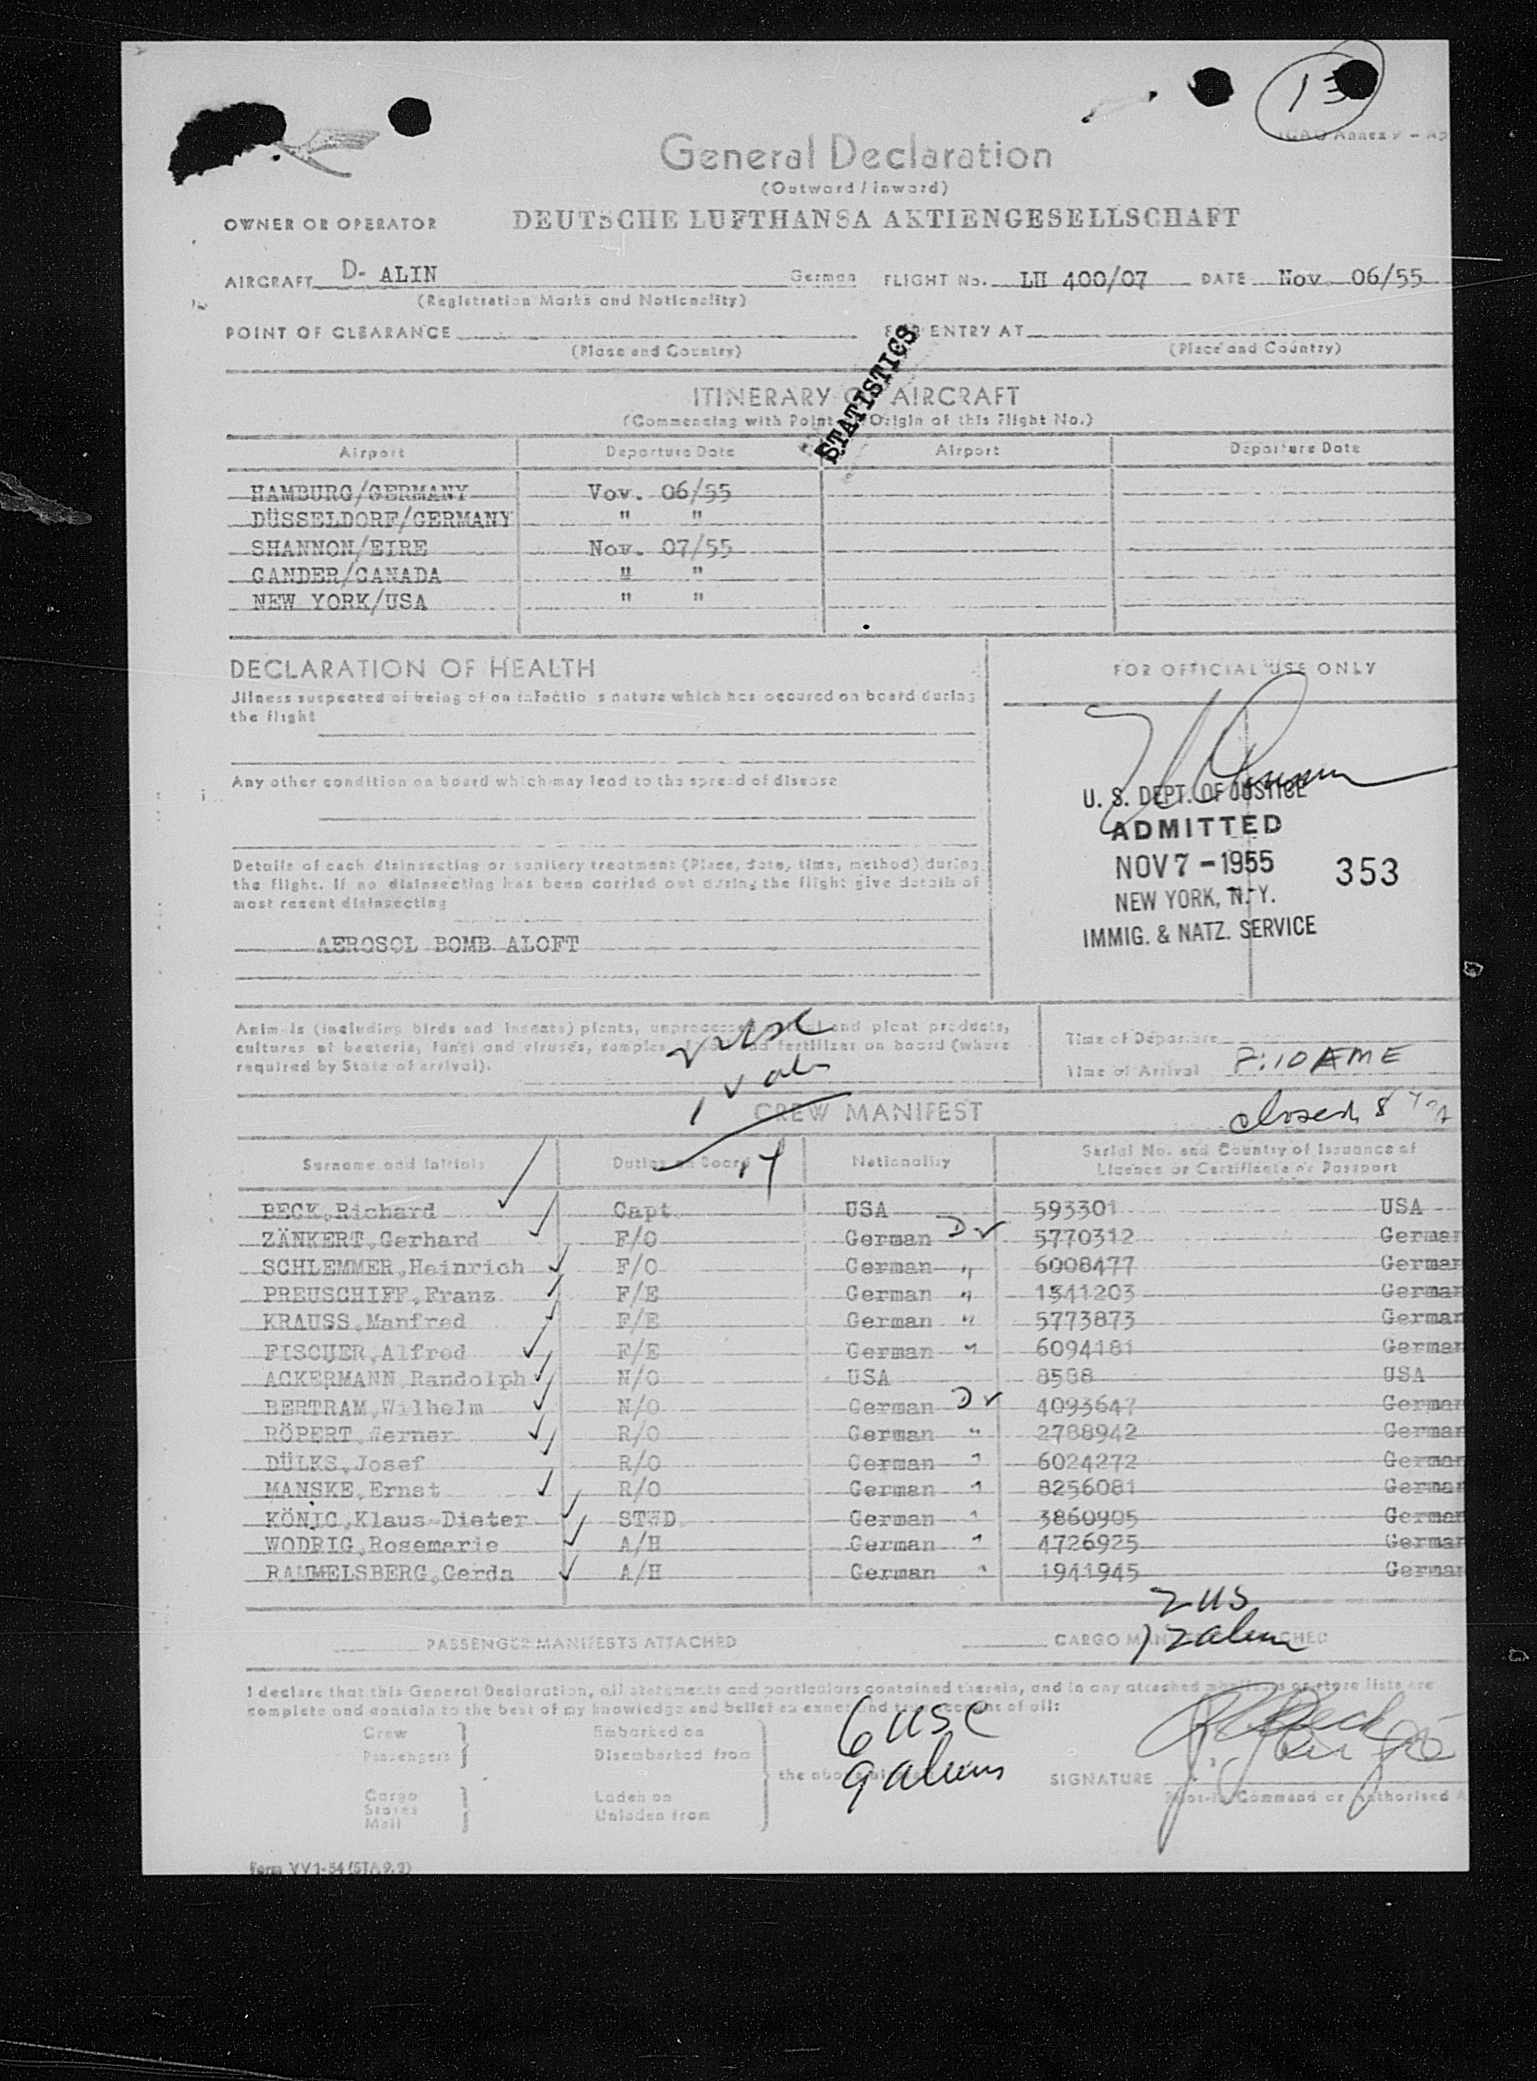 13
General Declaration
(Outward / Inward)
OWNER OR OPERATOR DEUTSCHE LUFTHANSA AKTIENGESELLSCHAFT
AIRCRAFT D- ALIN German FLIGHT No. LH 400/07 DATE Nov. 06/55
(Registration Marks and Nationality)
POINT OF CLEARANCE ENTRY AT
(Place and Country) (Place and Country)
STATISTICS
ITINERARY AIRCRAFT
(Commencing with Point Origin of this Flight No.)
Airport Departure Date Airport Departure Date
HAMBURG/GERMANY Vov. 06/55
DÜSSELDORF/GERMANY " "
SHANNON/EIRE Nov. 07/55
GANDER/CANADA " "
NEW YORK/USA " "
DECLARATION OF HEALTH
FOR OFFICIAL USE ONLY
Jllness suspected of being of an infectio s nature which has occured on board during
the flight
Any other condition on board which may lead to the spread of disease
U. S. DEPT. OF JUSTICE
ADMITTED
NOV 7 - 1955 353
NEW YORK, N. Y.
IMMIG. & NATZ. SERVICE
Details of each disinsecting or sanitery treatment (Place, date, time, method) during
the flight. If no disinsecting has been carried out during the flight give details of
most resent disinsecting
AEROSOL BOMB ALOFT
Animals (including birds and insects) plants, unprocessed and plant products,
cultures of bacteria, fungi and viruses, samples fertilizer on board (where
required by State of arrival).
Time of Departure
Time of Arrival 8:10 AME
closed 8
CREW MANIFEST
Surname and Initials Duties on Board Nationality Serial No. and Country of Issuance of
Licence or Certificate or Passport
BECK,Richard Capt. USA 593301 USA
ZÄNKERT,Gerhard F/O German D 5770312 German
SCHLEMMER,Heinrich F/O German " 6008477 German
PREUSCHIFF,Franz F/E German " 1341203 German
KRAUSS,Manfred F/E German " 5773873 German
FISCHER,Alfred F/E German " 6094181 German
ACKERMANN,Randolph N/O USA 8588 USA
BERTRAM,Wilhelm N/O German D 4093647 German
RÖPERT,Werner R/O German " 2788942 German
DÜLKS,Josef R/O German " 6024272 German
MANSKE,Ernst R/O German " 8256081 German
KÖNIG,Klaus-Dieter STWD. German " 3860905 German
WODRIG,Rosemarie A/H German " 4726925 German
RAMMELSBERG,Gerda A/H German " 1941945 German
2 US
PASSENGER MANIFESTS ATTACHED CARGO
I declare that this General Declaration, all statements and particulars contained therein, and in any attached or store lists are
complete and contain to the best of my knowledge and belief an exact and true account of all:
Crew Embarked on
Passengers Disembarked from
6 USC
9 aliens
Cargo Laden on
Stores Unladen from
Mail
SIGNATURE
Form VV 1-54 (STA 9.2)